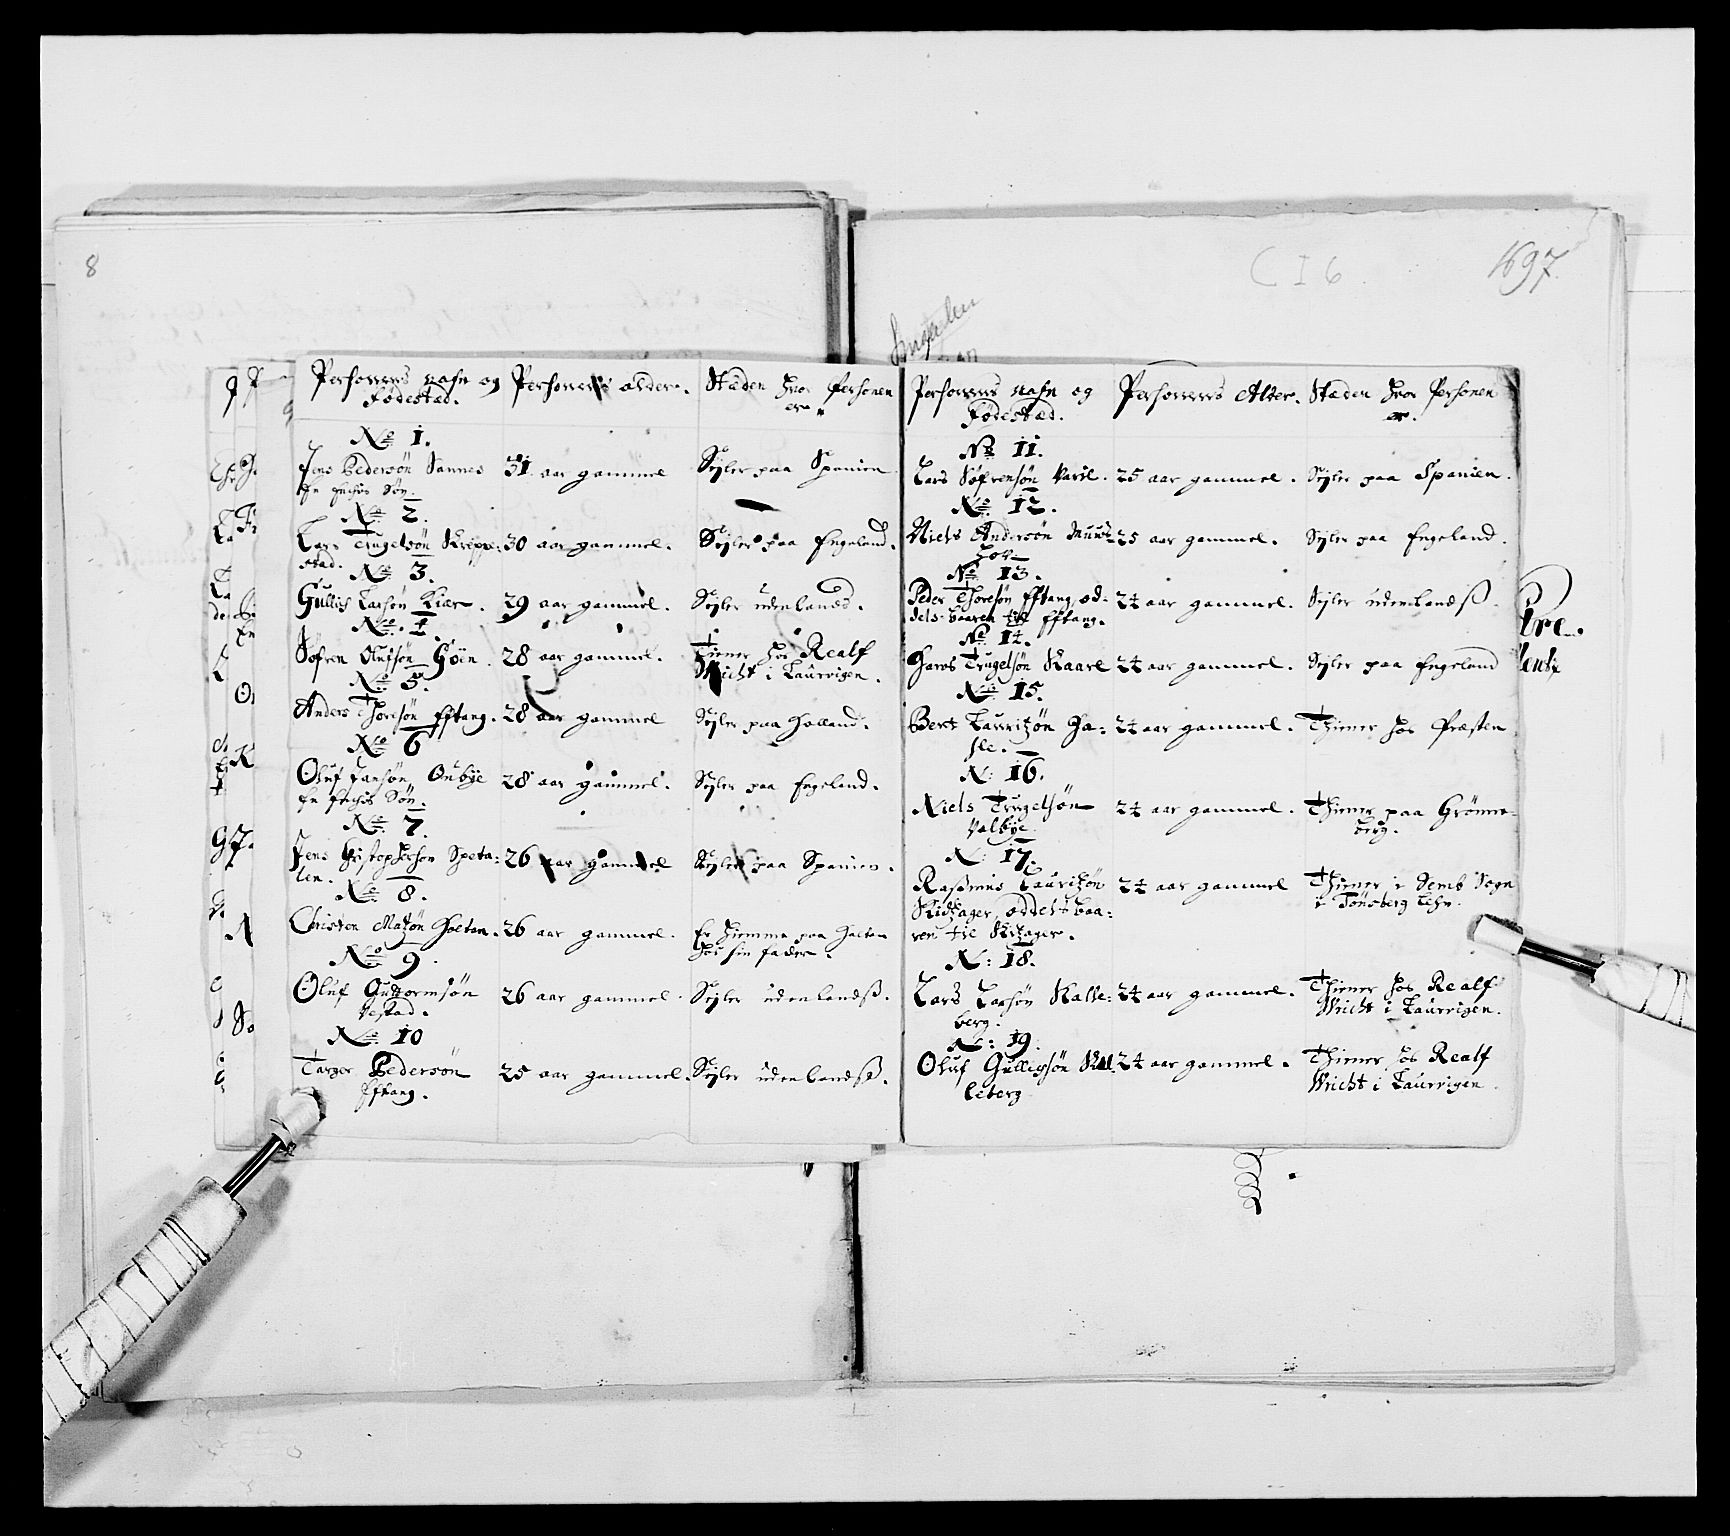 8
C I 6
1697
Personens nafn og
Fødestæd.
Personens alder.
Stæden hvor Personen
er
No 1.
Jens Pedersön Sannes
En Enches Sön.
31 aar gammel
Sejler paa Spanien
No 2.
Lars Trugelsön Kreppe-
stad.
30 aar gammel.
Sejler paa Engeland.
No 3.
Gullich Larsön Kiær.
29 aar gammel.
Sejler udenlands.
No. 4.
Söfren Olufsön Göen
28 aar gammel.
Tiener hos Realf
Wricht i Laurvigen.
No 5.
Anders Thoresön Efftang.
28 aar gammel
Sejler paa Holland.
No 6
Oluf Jansön Oubÿe
En Enches Sön.
28 aar gammel.
Sejler paa Engeland.
No 7.
Jens Christophersön Speta-
len.
26 aar gammel
Sejler paa Spanien.
No 8.
Christen Matzön Holtan.
26 aar gammel.
Er hiemme paa Holtan
hos sin fader.
No 9.
Oluf Guttormsön
Vestad.
26 aar gammel.
Sejler udenlandsß.
No 10
Targer Pedersön
Efftang.
25 aar gammel.
Sejler udenlandsß.
Personens nafn og
Fødestæd.
Personens Alter.
Stæden hvor Personen
er.
No 11.
Lars Söfrensön Varil.
25 aar gammel.
Sejler paa Spanien.
No 12.
Niels Andersön Muns-
hou
25 aar gammel.
Sejler paa Engeland.
No 13.
Peder Thoresön Efftang, od-
dels-baaren til Efftang.
24 aar gammel.
Sejler udenlandsß.
No 14.
Hans Trugelsön Kaarl
24 aar gammel.
Sejler paa Engeland
No 15.
Bent Lauritzön Ha-
sle.
24 aar gammel.
Thiener hos Præsten
N: 16.
Niels Trugelsön
Valbÿe.
24 aar gammel.
Thiener paa Grönne-
berg.
N: 17.
Rasmus Lauritzön
Kidtzager, oddels baa-
ren til Kitzager.
24 aar gammel
Thiener i Semb Sogn
i Tönsberg Lehn.
N: 18.
Lars Larsön Kalle-
berg.
24 aar gammel.
Thiener hos Realf
Wricht i Laurvigen.
N: 19.
Oluf Gullichsön Kal-
leberg
24 aar gammel.
Thiener hos Realf
Wricht i Laurvigen.